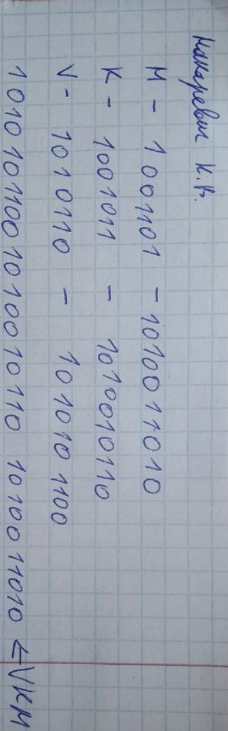 Макаревич К.В.
M - 1001101 - 1010011010
K - 1001011 - 1010010110
V - 1010110 - 101010 1100
1010101100 1010010110 1010011010 <= VKM